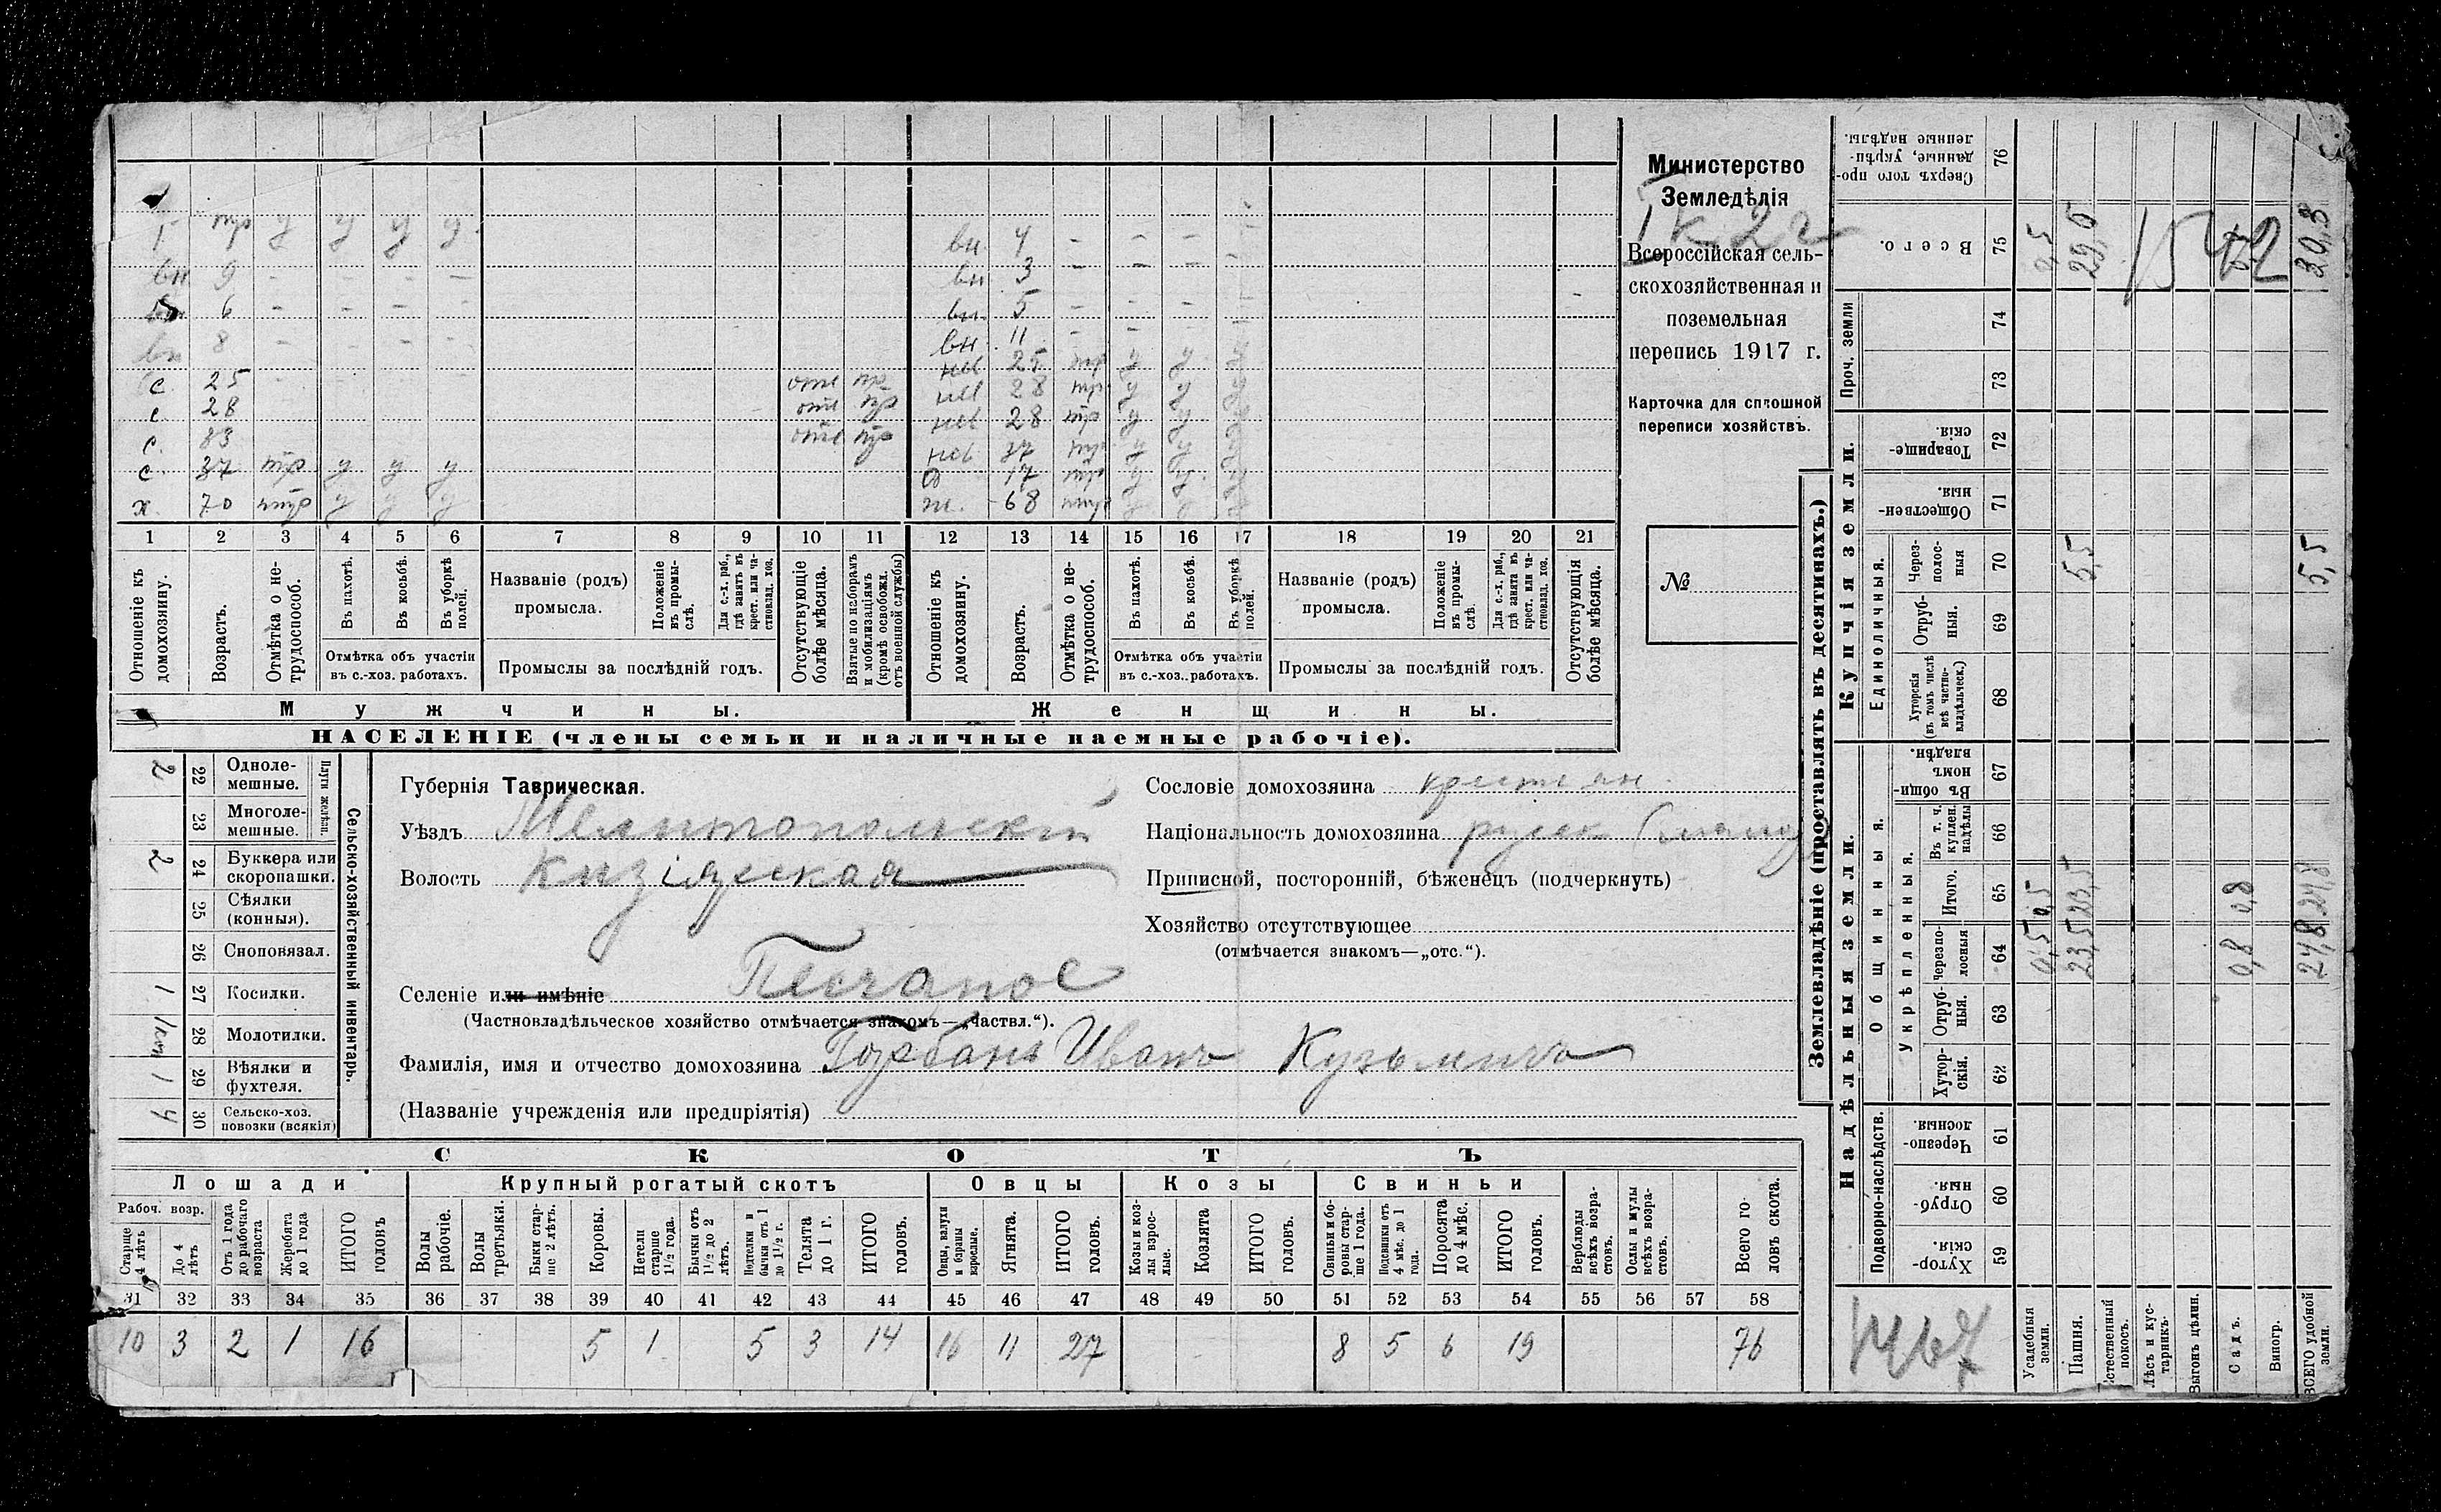 тр у у у у
вн 4 - - - -
вн 9 - - - -
вн 3 - - - -
6 - - - -
вн 5 - - - -
вн 8 - - - -
вн 11 - - - -
с 25 - - отс пр
нев 25 тр у у у
с 28 отс пр
нев 28 тр у у у
с. отс пр
нев 28 тр у у у
с. 37 тр у у у
нев 37 тр у у у
17 тр у у у
х 70 тр у у у
ж. 68 у у у
1 2 3 4 5 6 7 8 9 10 11 12 13 14 15 16 17 18 19 20 21
Отношеніе къ домохозяину.
Возрастъ.
Отмѣтка о не-трудоспособ.
Въ пахотѣ.
Въ косьбѣ.
Въ уборкѣ полей.
Отмѣтка объ участіи
въ с.-хоз. работахъ.
Названіе (родъ)
промысла.
Положеніе въ промы-слѣ.
Для с.-х. раб., гдѣ занятъ въ крест. или ча-стновлад. хоз.
Промыслы за послѣдній годъ.
Отсутствующіе болѣе мѣсяца.
Взятые по наборамъ и мобилизаціямъ (кромѣ освобожд. отъ военной службы)
Отношеніе къ домохозяину.
Возрастъ.
Отмѣтка о не-трудоспособ.
Въ пахотѣ.
Въ косьбѣ.
Въ уборкѣ полей.
Отмѣтка объ участіи
въ с.-хоз. работахъ.
Названіе (родъ)
промысла.
Положеніе въ промы-слѣ.
Для с.-х. раб., гдѣ занята въ крест. или ча-стновлад. хоз.
Промыслы за послѣдній годъ.
Отсутствующія болѣе мѣсяца.
Мужчины.
Женщины.
НАСЕЛЕНІЕ (члены семьи и наличные наемные рабочіе).
Министерство
Земледѣлія
Всероссійская сель-
скохозяйственная и
поземельная
перепись 1917 г.
Карточка для сплошной
переписи хозяйствъ.
№
Сельско-хозяйственный инвентарь.
Плуги желѣзн.
2 22 Одноле-мешные.
23 Многоле-мешные.
2 24 Буккера или скоропашки.
25 Сѣялки (конныя).
26 Сноповязал.
1 27 Косилки.
28 Молотилки.
1 29 Вѣялки и фухтеля.
4 30 Сельско-хоз. повозки (всякія)
Губернія Таврическая.
Уѣздъ Мелитопольскій
Волость Кизіярская
Селеніе или имѣніе Песчаное
(Частновладѣльческое хозяйство отмѣчается знакомъ—„частвл.“).
Фамилія, имя и отчество домохозяина Горбань Иванъ Кузьмичъ
(Названіе учрежденія или предпріятія)
Сословіе домохозяина крестьян
Національность домохозяина русск (малор
Приписной, посторонній, бѣженецъ (подчеркнуть)
Хозяйство отсутствующее
(отмѣчается знакомъ—„отс.“).
СКОТЪ
Лошади Крупный рогатый скотъ Овцы Козы Свиньи
Рабоч. возр.
Старше 4 лѣтъ
До 4 лѣтъ
Отъ 1 года до рабочаго возраста
Жеребята до 1 года
ИТОГО головъ
Волы рабочіе.
Волы третьяки.
Быки стар-ше 2 лѣтъ.
Коровы.
Нетели старше 1 1/2 года.
Бычки отъ 1 1/2 до 2 лѣтъ.
Подтелки и бычки отъ 1 до 1 1/2 г.
Телята до 1 г.
ИТОГО головъ.
Овцы, валухи и бараны взрослые.
Ягнята.
ИТОГО головъ.
Козы и коз-лы взрос-лые.
Козлята
ИТОГО головъ.
Свиньи и бо-ровы стар-ше 1 года.
Подсвинки отъ 4 мѣс. до 1 года.
Поросята до 4 мѣс.
ИТОГО головъ.
Верблюды всѣхъ возра-стовъ.
Ослы и мулы всѣхъ возра-стовъ.
Всего го-ловъ скота.
31 32 33 34 35 36 37 38 39 40 41 42 43 44 45 46 47 48 49 50 51 52 53 54 55 56 57 58
10 3 2 1 16 5 1 5 3 14 16 11 27 8 5 6 19 76
Землевладѣніе (проставлять въ десятинахъ.)
Надѣльныя земли.
Купчія земли.
Проч. земли
Подворно-наслѣдств.
Общинныя.
Укрѣпленныя.
Единоличныя.
Сверхъ того про-данные, укрѣп-ленные надѣлы. 76
Всего. 75 0,5 29,0 30,3
1542
74
73
Товарище-скія. 72
Обществен-ныя. 71
Через-полос-ныя 70 5,5 5,5
Отруб-ныя. 69
Хуторскія (въ томъ числѣ всѣ частно-владѣльческ.) 68
Въ общин-номъ владѣн. 67
Въ т. ч. куплен. надѣлы 66
Итого. 65 0,5 23,5 0,8 24,8
Черезпо-лосныя 64 0,5 23,5 0,8 24,8
Отруб-ныя. 63
Хутор-скія. 62
Черезпо-лосныя. 61
Отруб-ныя. 60
Хутор-скія. 59
Усадебныя земли.
Пашня.
Естественный покосъ.
Лѣсъ и кус-тарникъ.
Выгонъ цѣлин.
Садъ.
Виногр.
ВСЕГО удобной земли.